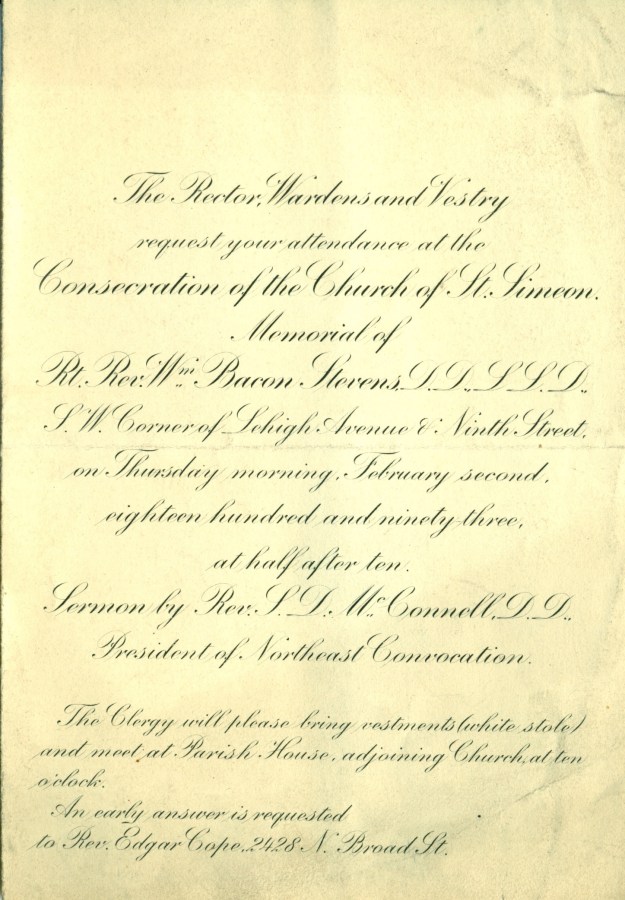 The Rector, Wardens and Vestry
request your attendance at the
Consecration of the Church of St. Simeon.
Memorial of
Rt. Rev. Wm. Bacon Stevens, D.D., L.L.D.,
S.W. Corner of Lehigh Avenue & Ninth Street,
on Thursday morning, February second,
eighteen hundred and ninety-three,
at half after ten.
Sermon by Rev. S. D. McConnell, D.D.,
President of Northeast Convocation.
The Clergy will please bring vestments (white stole)
and meet at Parish House, adjoining Church, at ten
o'clock.
An early answer is requested
to Rev. Edgar Cope, 2428 N. Broad St.